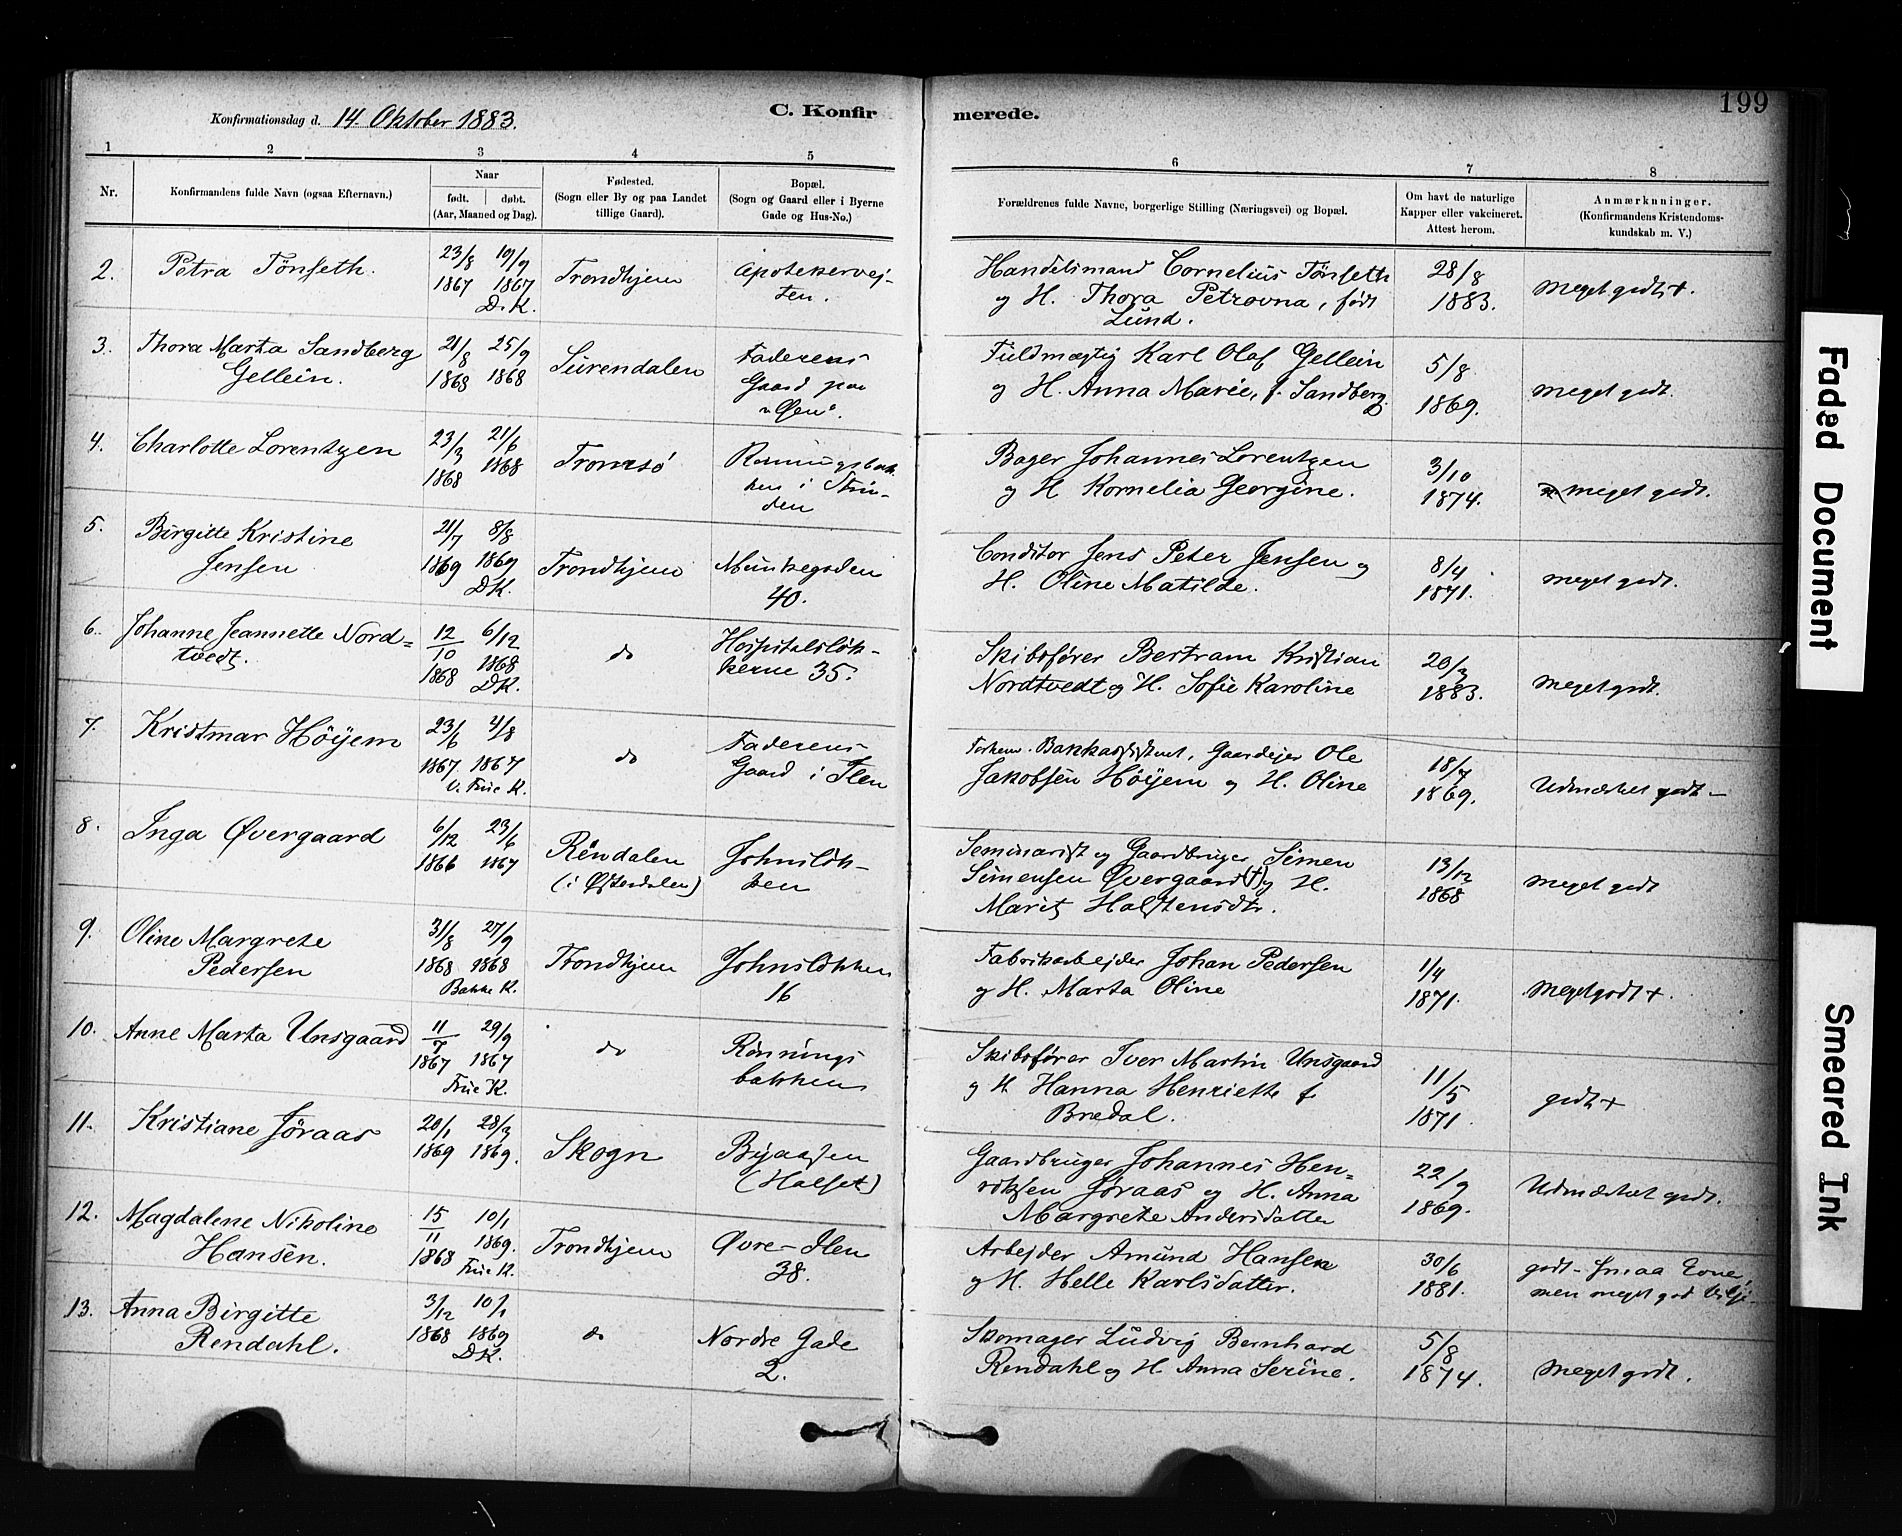 Konfirmationsdag d. 14. Oktober 1883.
C. Konfir
merede.
199
1 2 3 4 5 6 7 8
Nr.
Konfirmandens fulde Navn (ogsaa Efternavn.)
Naar
født. døbt.
(Aar, Maaned og Dag).
Fødested.
(Sogn eller By og paa Landet
tillige Gaard).
Bopæl.
(Sogn og Gaard eller i Byerne
Gade og Hus-No.)
Forældrenes fulde Navne, borgerlige Stilling (Næringsvei) og Bopæl.
Om havt de naturlige
Kapper eller vakcineret.
Attest herom.
Anmærknninger.
(Konfirmandens Kristendoms-
kundskab m. V.)
2. Petra Tönseth.
23/8 19/9
1867 1867
D. K.
Trondhjem
Apotekervej-
ten.
Handelsmand Cornelius Tönseth
og H. Thora Petrovna, født
Lund.
28/8
1883.
Meget godt +.
3. Thora Marta Sandberg
Gellein.
21/8 25/9
1868 1868
Surendalen
Faderens
Gaard paa
"Øen".
Fuldmægtig Karl Olaf Gellein
og H. Anna Marie, f. Sandberg.
5/8
1869.
meget godt.
4. Charlotte Lorentzen
23/3 21/6
1868 1868
Tromsö
ken i Strin-
den
Bager Johannes Lorentzen
og H Kornelia Georgine.
3/10
1874.
meget godt.
5. Birgitte Kristine
Jensen
21/7 8/8
1869 1869
DK.
Trondhjem
Munkegaden
40.
Conditor Jens Peter Jensen og
H. Oline Matilde.
8/4
1871.
meget godt.
6. Johanne Jeannette Nord=
tvedt.
12/10 6/12
1868 1868
DK.
do
Hospitalslök-
kerne 35.
Skibsfører Bertram Kristian
Nordtvedt og H. Sofie Karoline
20/3
1883.
meget godt.
7. Kristmar Höijem
23/6 4/8
1867 1867
V. Frue K.
do
Faderens
Gaard i Ilen
Bankassistent, Gaardejer Ole
Jakobsen Höijem og H. Oline
18/7
1869.
Udmærket godt -
8. Inga Øvergaard
6/12 23/6
1866 1867
Rendalen
(i Østerdalen)
Johnslök-
ken
Seminarist og Gaardbruger Simen
Simensen Øvergaard (†) og H.
Marit Halstensdtr.
13/12
1868
meget godt
9. Oline Margrete
Pedersen
31/8 27/9
1868 1868
Bakke K.
Trondhjem
Johnslökken
16
Fabrikarbejder Johan Pedersen
og H. Marta Oline
1/4
1871.
Meget godt +.
10. Anne Marta Unsgaard
11/7 29/9
1867 1867
Frue K.
do
Rönnings
bakken
Skibsfører Iver Martin Unsgaard
og H Hanna Henriette f.
Bredal.
11/5
1871.
godt +
11. Kristiane Jöraas
20/1 28/3
1869 1869.
Skogn
Byaasen
(Halset)
Gaardbruger Johannes Hen=
riksen Jöraas og H. Anna
Margrete Andersdatter
22/9
1869.
Udmærket godt.
12. Magdalene Nikoline
Hansen.
15/11 10/1
1868 1869.
Frue K.
Trondhjem
Øvre-Ilen
38.
Arbejder Amund Hansen
og H. Helle Karlsdatter.
30/6
1881.
godt - smaa Evne,
men meget god Vilje -
13. Anna Birgitte
Rendahl.
3/12 10/1
1868 1869
DK.
do
Nordre Gade
2.
Skomager Ludvig Bernhard
Rendahl og H Anna Serine.
5/8
1874.
Meget godt.
Faded Document
Smeared Ink